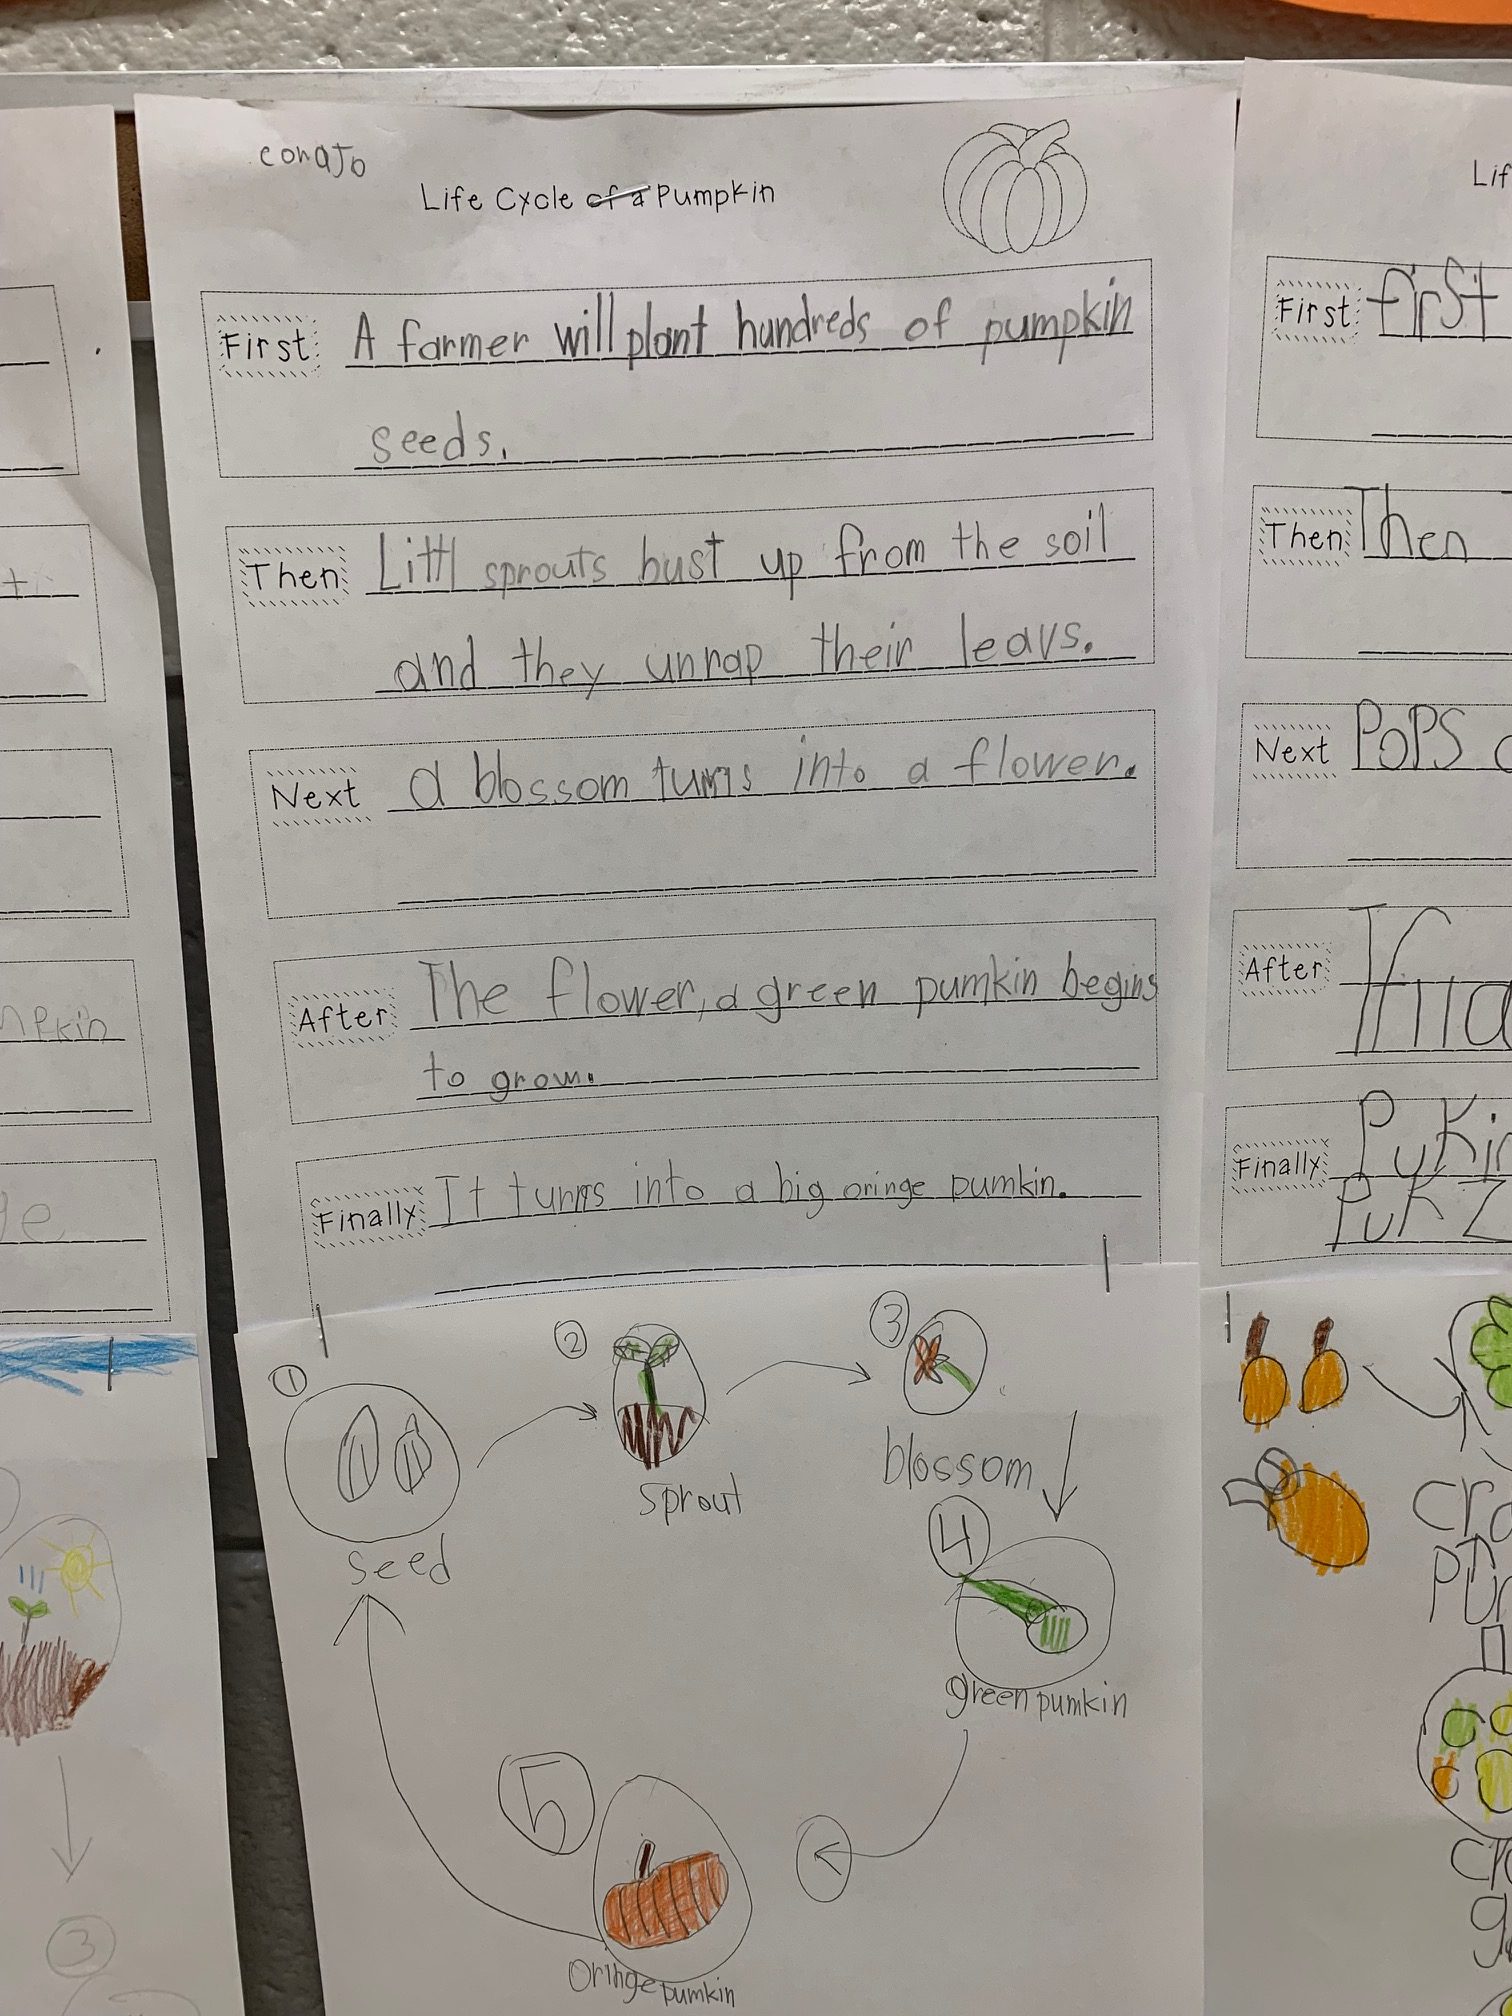 conaJo
Life Cycle of a Pumpkin
First
A farmer will plant hundreds of pumpkin
seeds.
Then
Littl sprouts bust up from the soil
and they unrap their leavs.
Next
a blossom turns into a flower.
After
The flower, a green pumkin begins
to grow.
Finally
It turns into a big oringe pumkin.
1
seed
2
sprout
3
blossom
4
green pumkin
5
Oringe pumkin
3
First
first
Then
Then
Next
PoPS
After
Finally